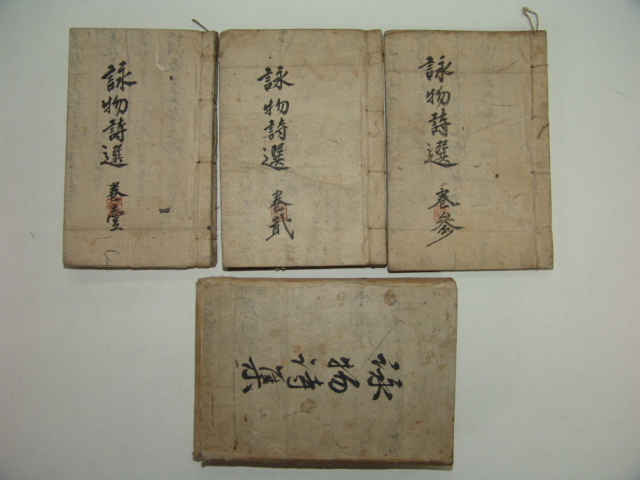 詠物詩選 卷壹
詠物詩選 卷貳
詠物詩選 卷参
詠物詩集